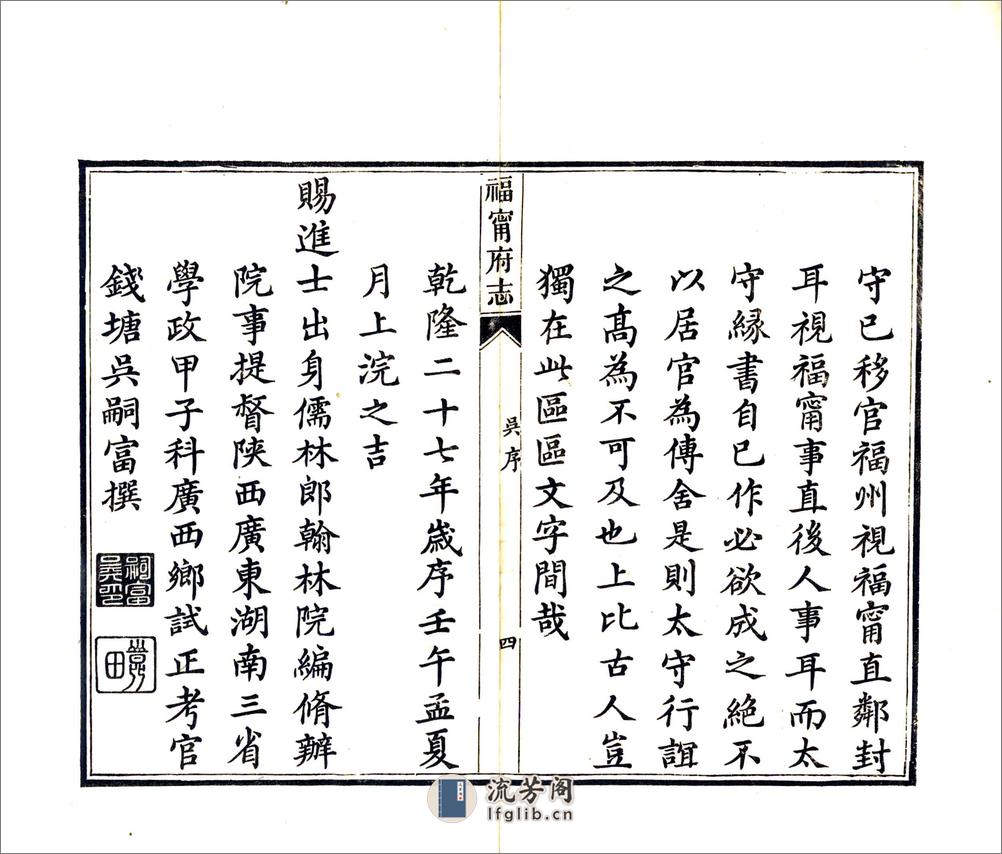 守已移官福州視福甯直鄰封
耳視福甯事直後人事耳而太
守緣書自已作必欲成之絕不
以居官為傳舍是則太守行誼
之髙為不可及也上比古人豈
獨在此區區文字間哉
福甯府志
吳序
四
乾隆二十七年歲序壬午孟夏
月上浣之吉
賜進士出身儒林郎翰林院編脩辦
院事提督陝西廣東湖南三省
學政甲子科廣西鄉試正考官
錢塘吳嗣富撰
嗣富
吳印
流芳阁
lfglib.cn